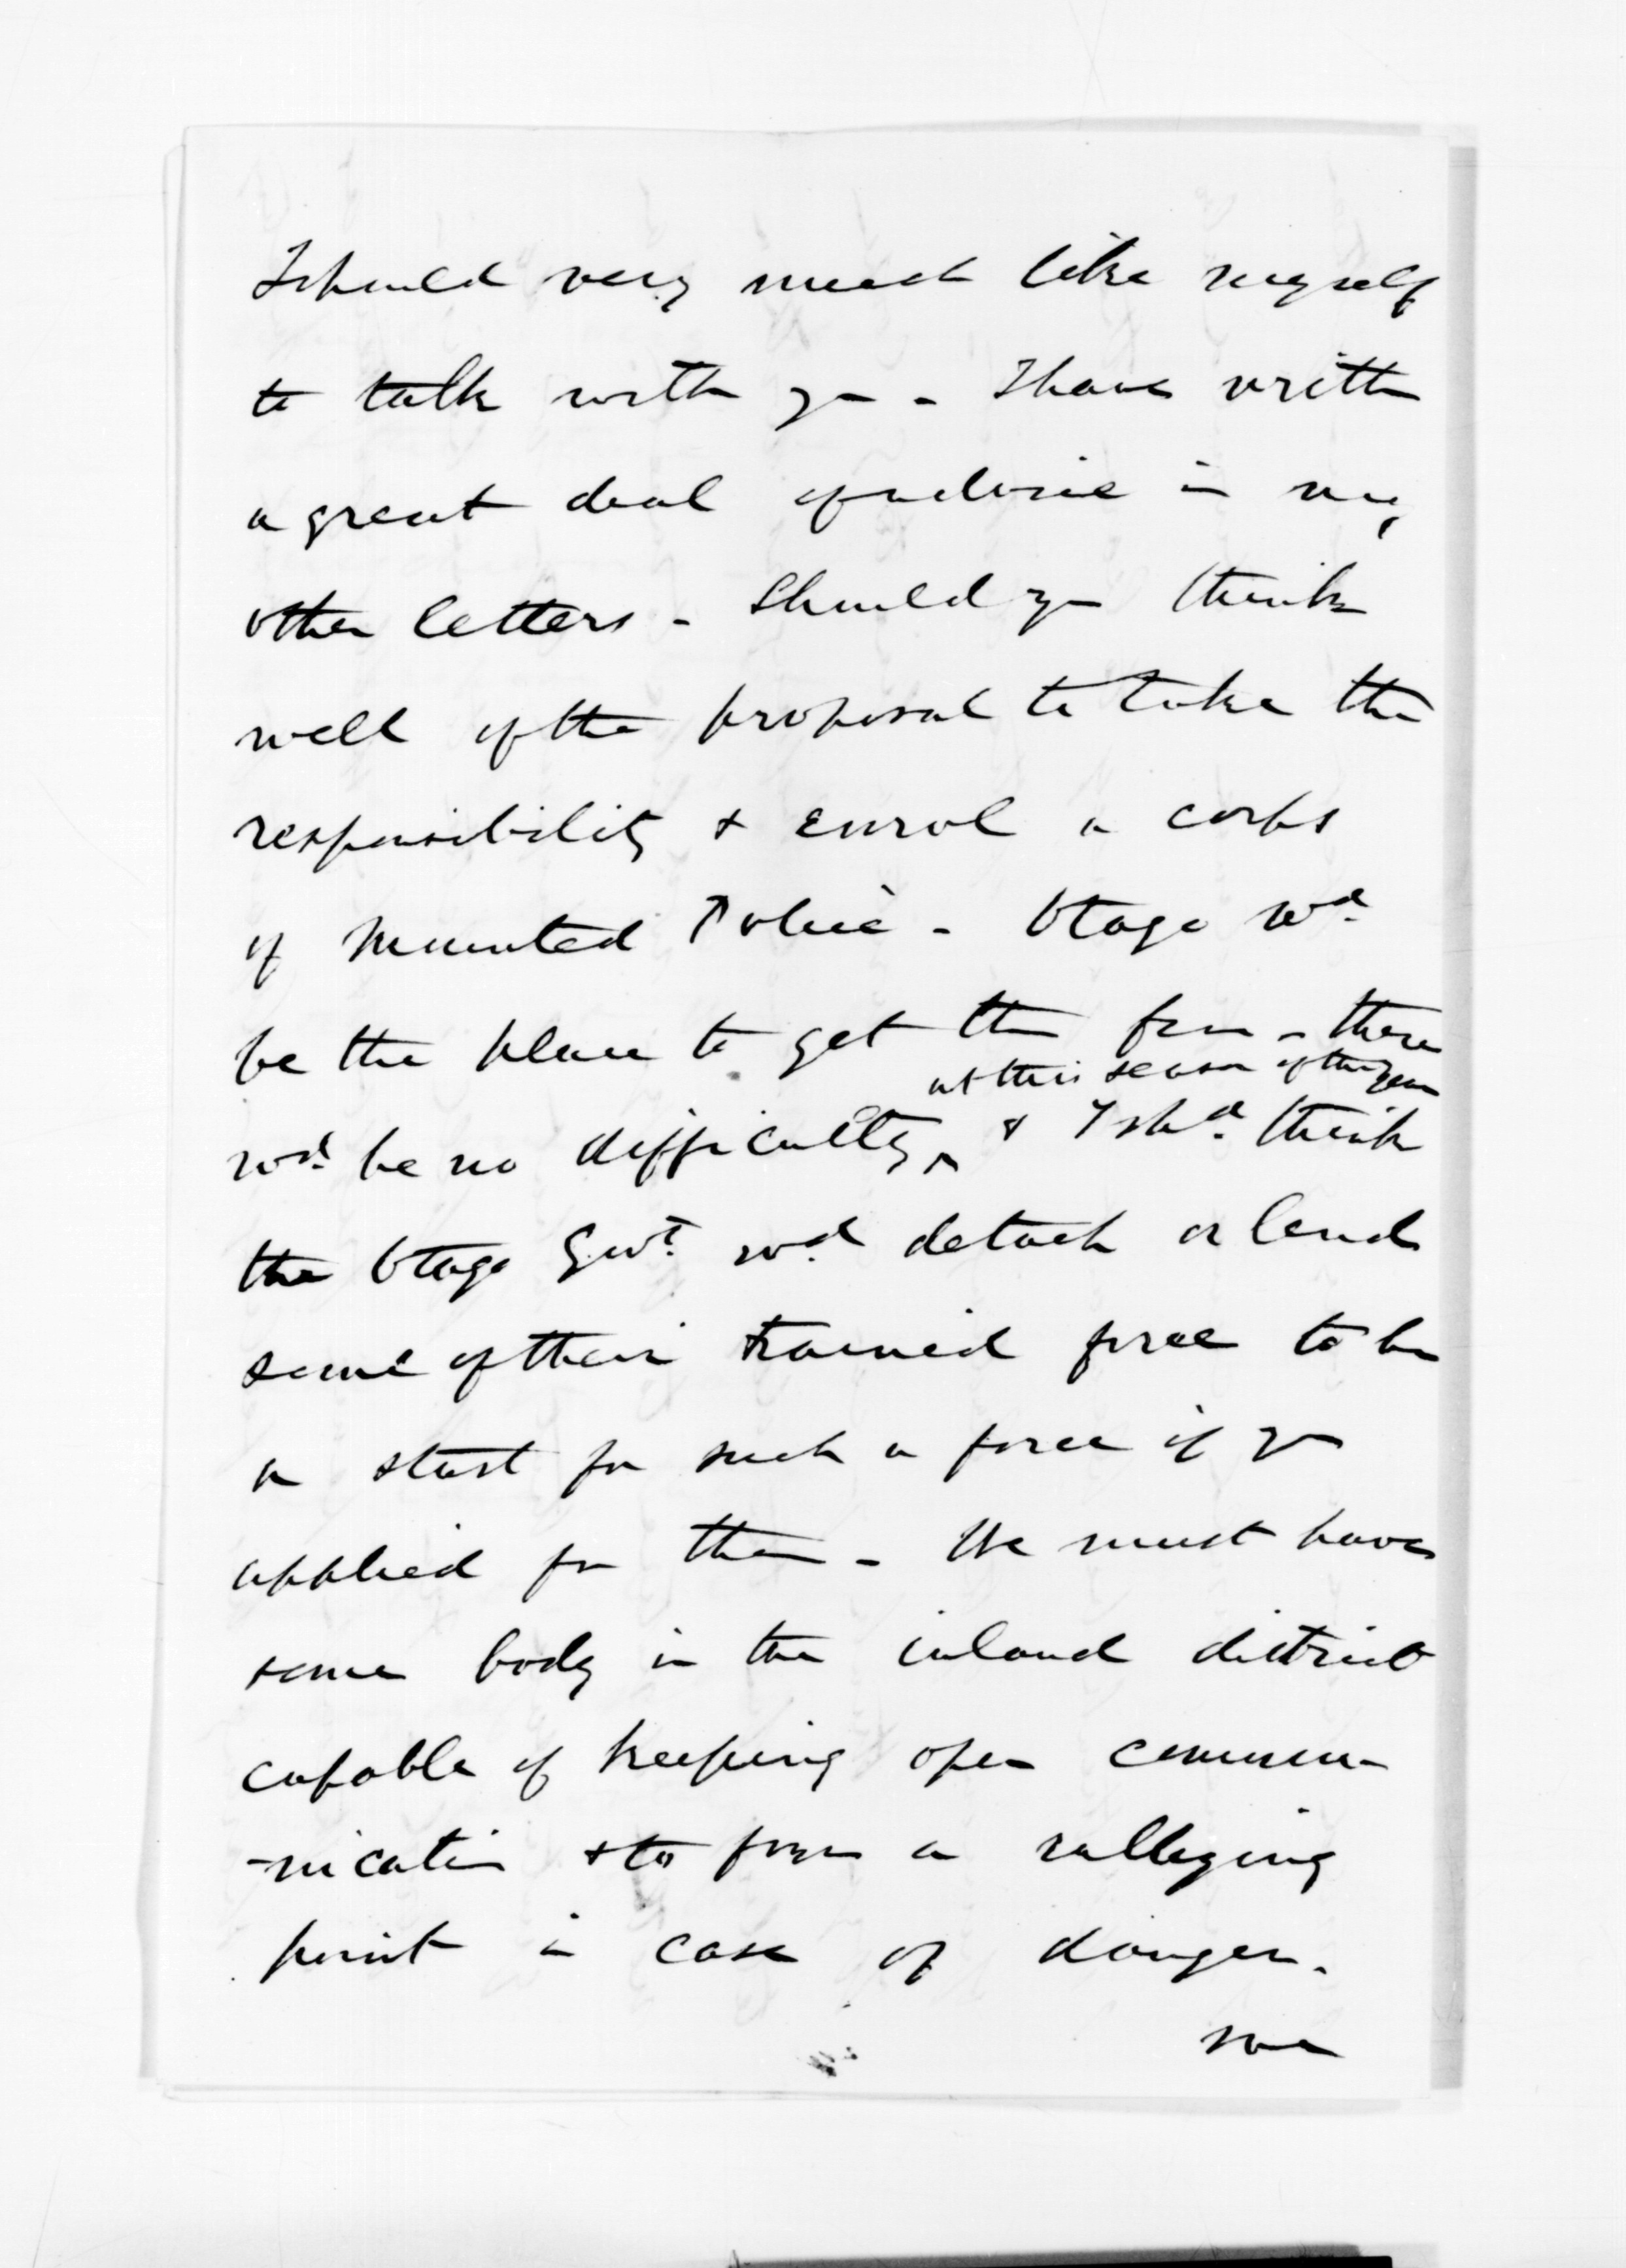 I should very much like myself
to talk with you - I have written
a great deal of advice in my
other letters - Should you think
well of the proposal to take the
responsibility & enrol a corps
of Mounted Police - Otago wd.
be the place to get them from - there
at this season of the year
wd. be no difficulty ^ & I shd. think
the Otago Govt. wd. detach or lend
some of their trained force to be
a start for such a force if you
applied for them - We must have
some body in the inland district
capable of keeping open commu-
-nication & to form a rallying
point in case of danger.
we